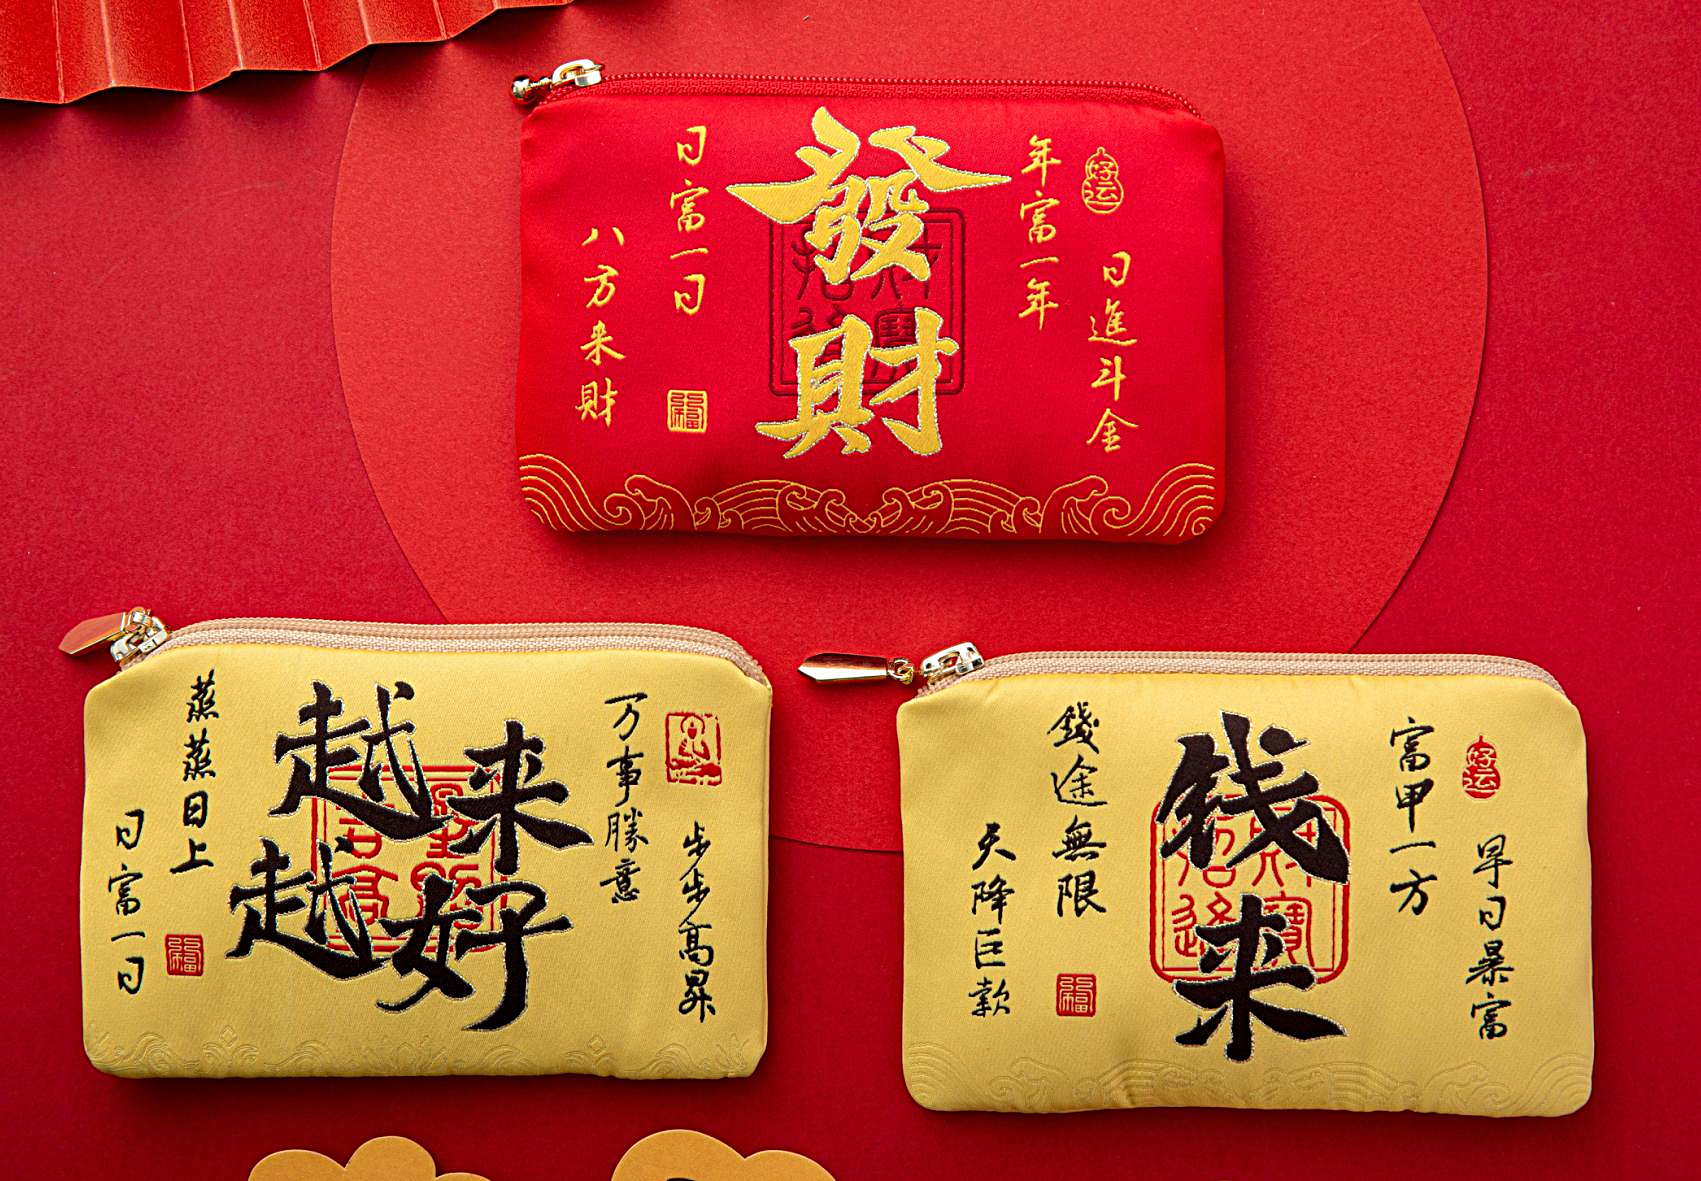 好运
日進斗金
年富一年
發財
招財進寶
日富一日
福
八方来財
步步高昇
万事勝意
越来越好
蒸蒸日上
福
日富一日
好运
早日暴富
富甲一方
钱来
招財進寶
錢途無限
福
天降巨款